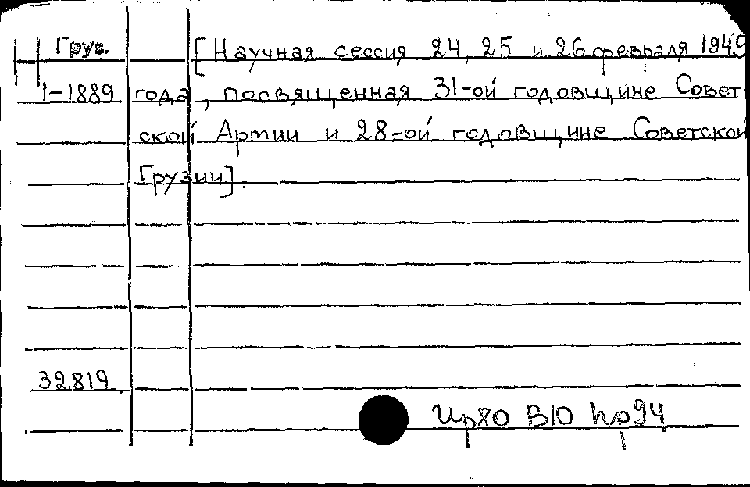 Груз. [Научная сессия 24, 25 и 26 февраля 1949
1-1889 года, посвященная 31-ой годовщине Совет
ской Армии и 28-ой годовщине Советской
Грузии].
32819
В10